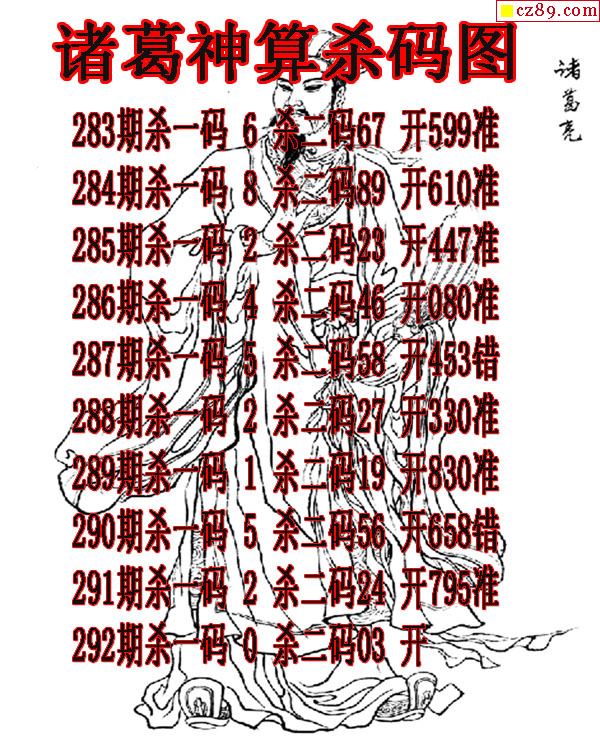 cz89.com
诸葛神算杀码图
诸葛亮
283期杀一码 6 杀二码67 开599准
284期杀一码 8 杀二码89 开610准
285期杀一码 2 杀二码23 开447准
286期杀一码 4 杀二码46 开080准
287期杀一码 5 杀二码58 开453错
288期杀一码 2 杀二码27 开330准
289期杀一码 1 杀二码19 开830准
290期杀一码 5 杀二码56 开658错
291期杀一码 2 杀二码24 开795准
292期杀一码 0 杀二码03 开